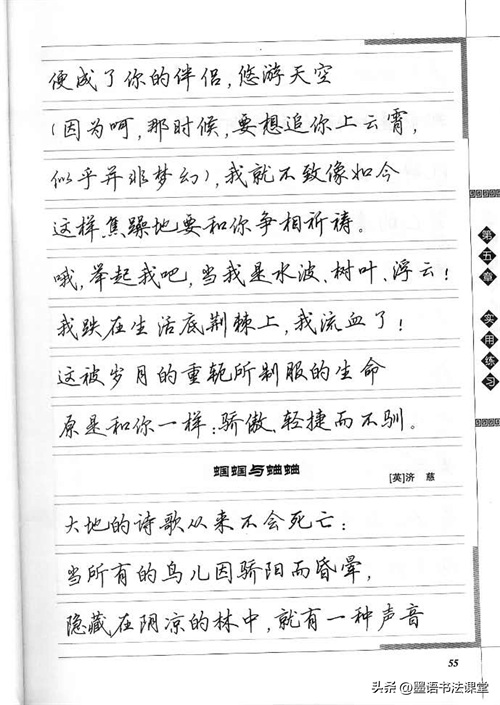 便成了你的伴侣，悠游天空
（因为呵，那时候，要想追你上云霄，
似乎并非梦幻），我就不致像如今
这样焦躁地要和你争相祈祷。
哦，举起我吧，当我是水波、树叶、浮云！
我跌在生活底荆棘上，我流血了！
这被岁月的重轭所制服的生命
原是和你一样：骄傲、轻捷而不驯。
蝈蝈与蛐蛐
[英]济 慈
大地的诗歌从来不会死亡：
当所有的鸟儿因骄阳而昏晕，
隐藏在阴凉的林中，就有一种声音
第五章 实用练习
55
头条@墨语书法课堂